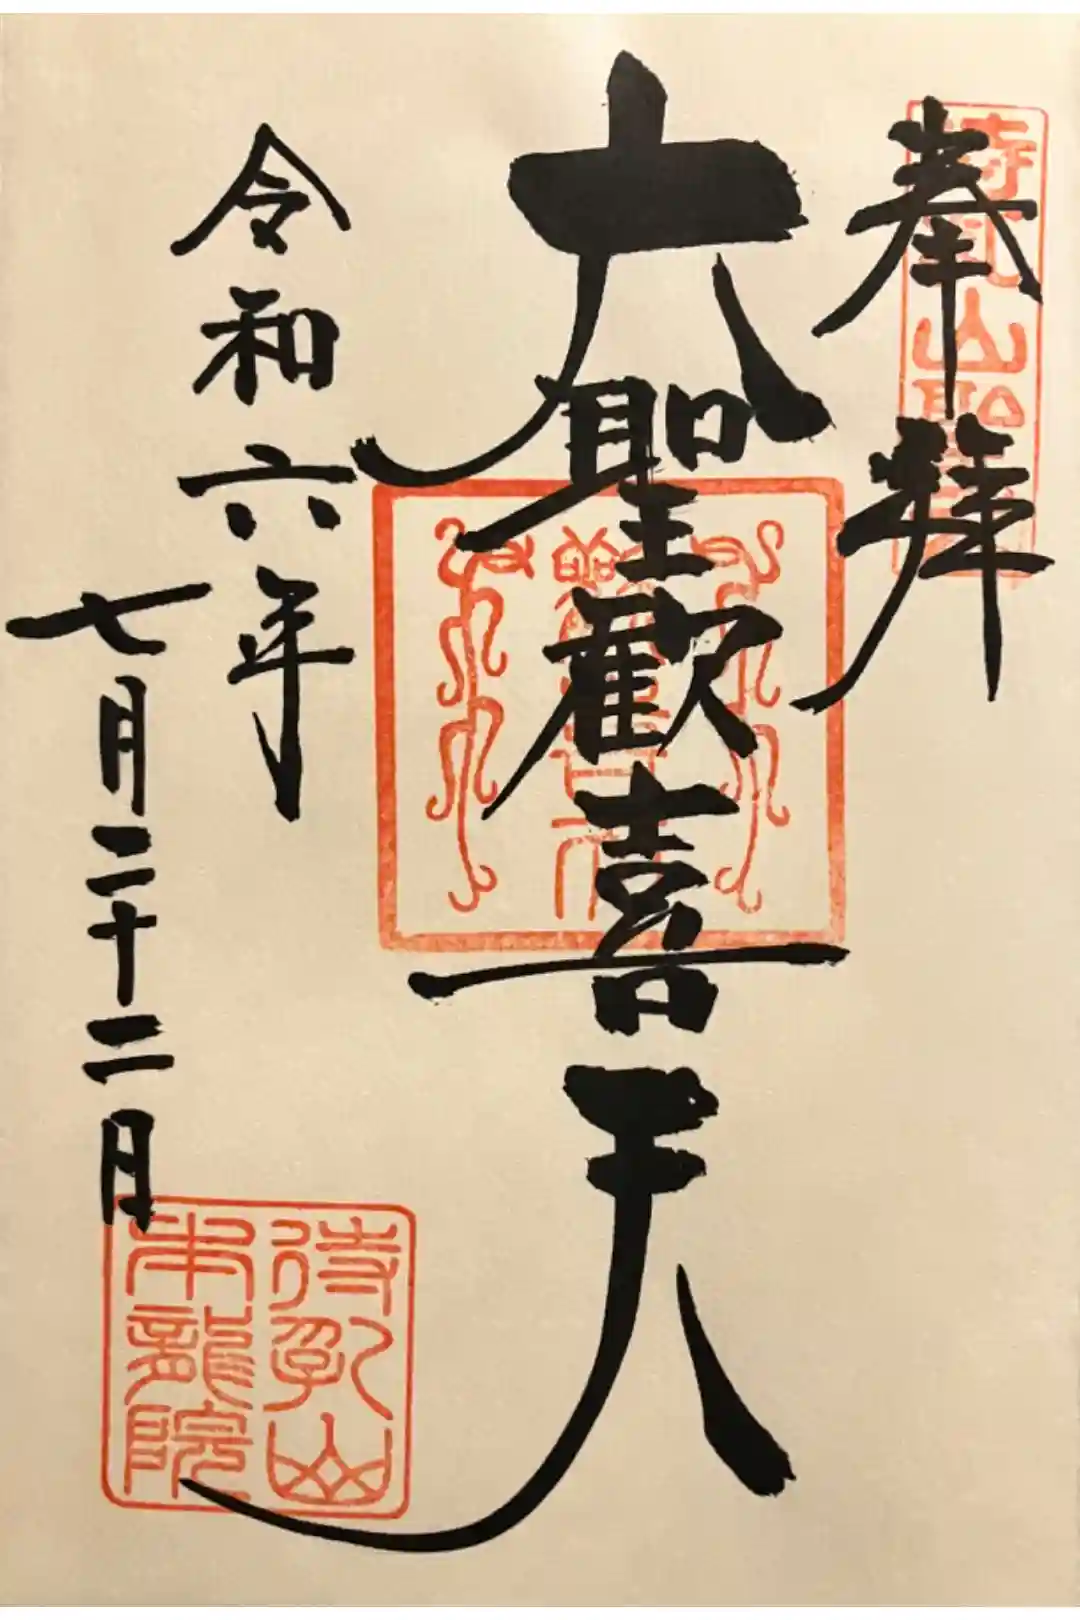 待乳山聖天
奉拝
大聖歓喜天
令和六年
七月二十二日
待乳山
本龍院